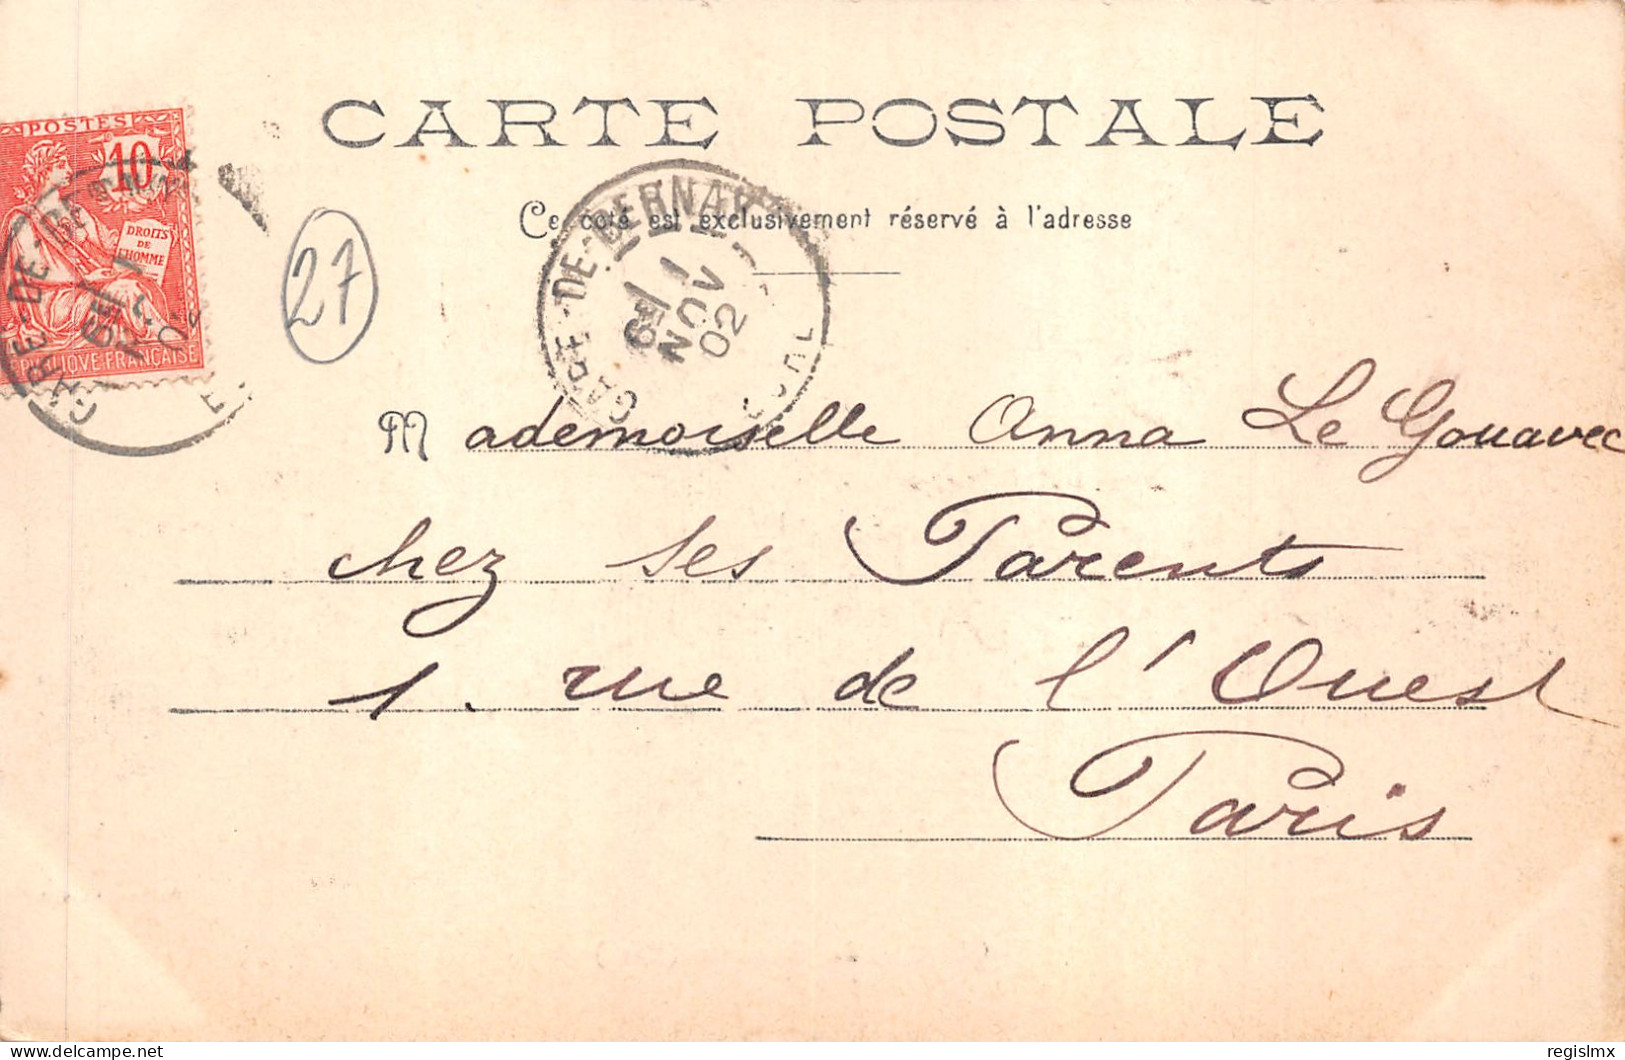 CARTE POSTALE
Ce coté est exclusivement réservé à l'adresse
POSTES
10
DROITS
DE
L'HOMME
RÉPUBLIQUE FRANÇAISE
GARE-DE-BERNAY
GARE-DE-BERNAY
EURE
6E
1
NOV
02
27
Mademoiselle Anna Le Gouavec
chez ses Parents
1. rue de l'Ouest
Paris
delcampe.net
regislmx